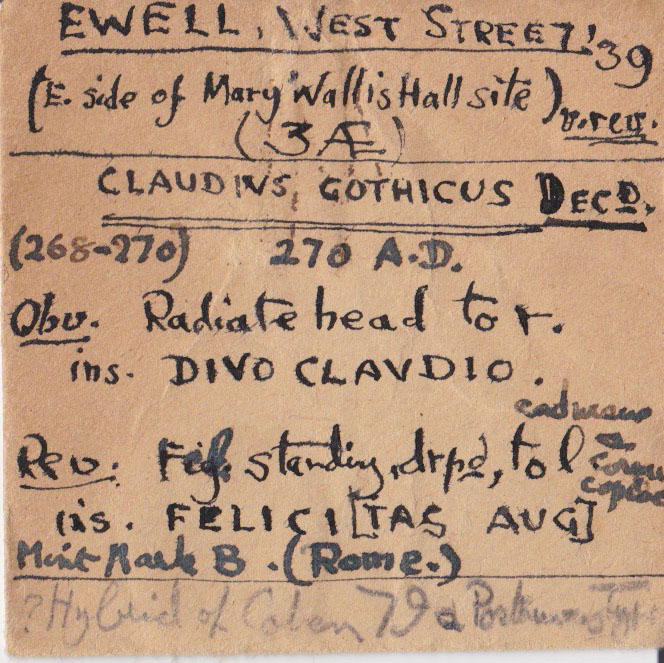 EWELL, WEST STREET! '39
(E. side of Mary Wallis Hall site) v. rev.
(3Æ)
CLAUDIUS GOTHICUS DECD.
(268-270) 270 A.D.
Obv. Radiate head to r.
ins. DIVO CLAVDIO.
caduceus
Rev. Fig. standing, drpd, to l
&
cornu
copiae
ins. FELICI[TAS AUG]
Mint Mark B. (Rome.)
? Hybrid of Cohen 79 & Posthumus Type